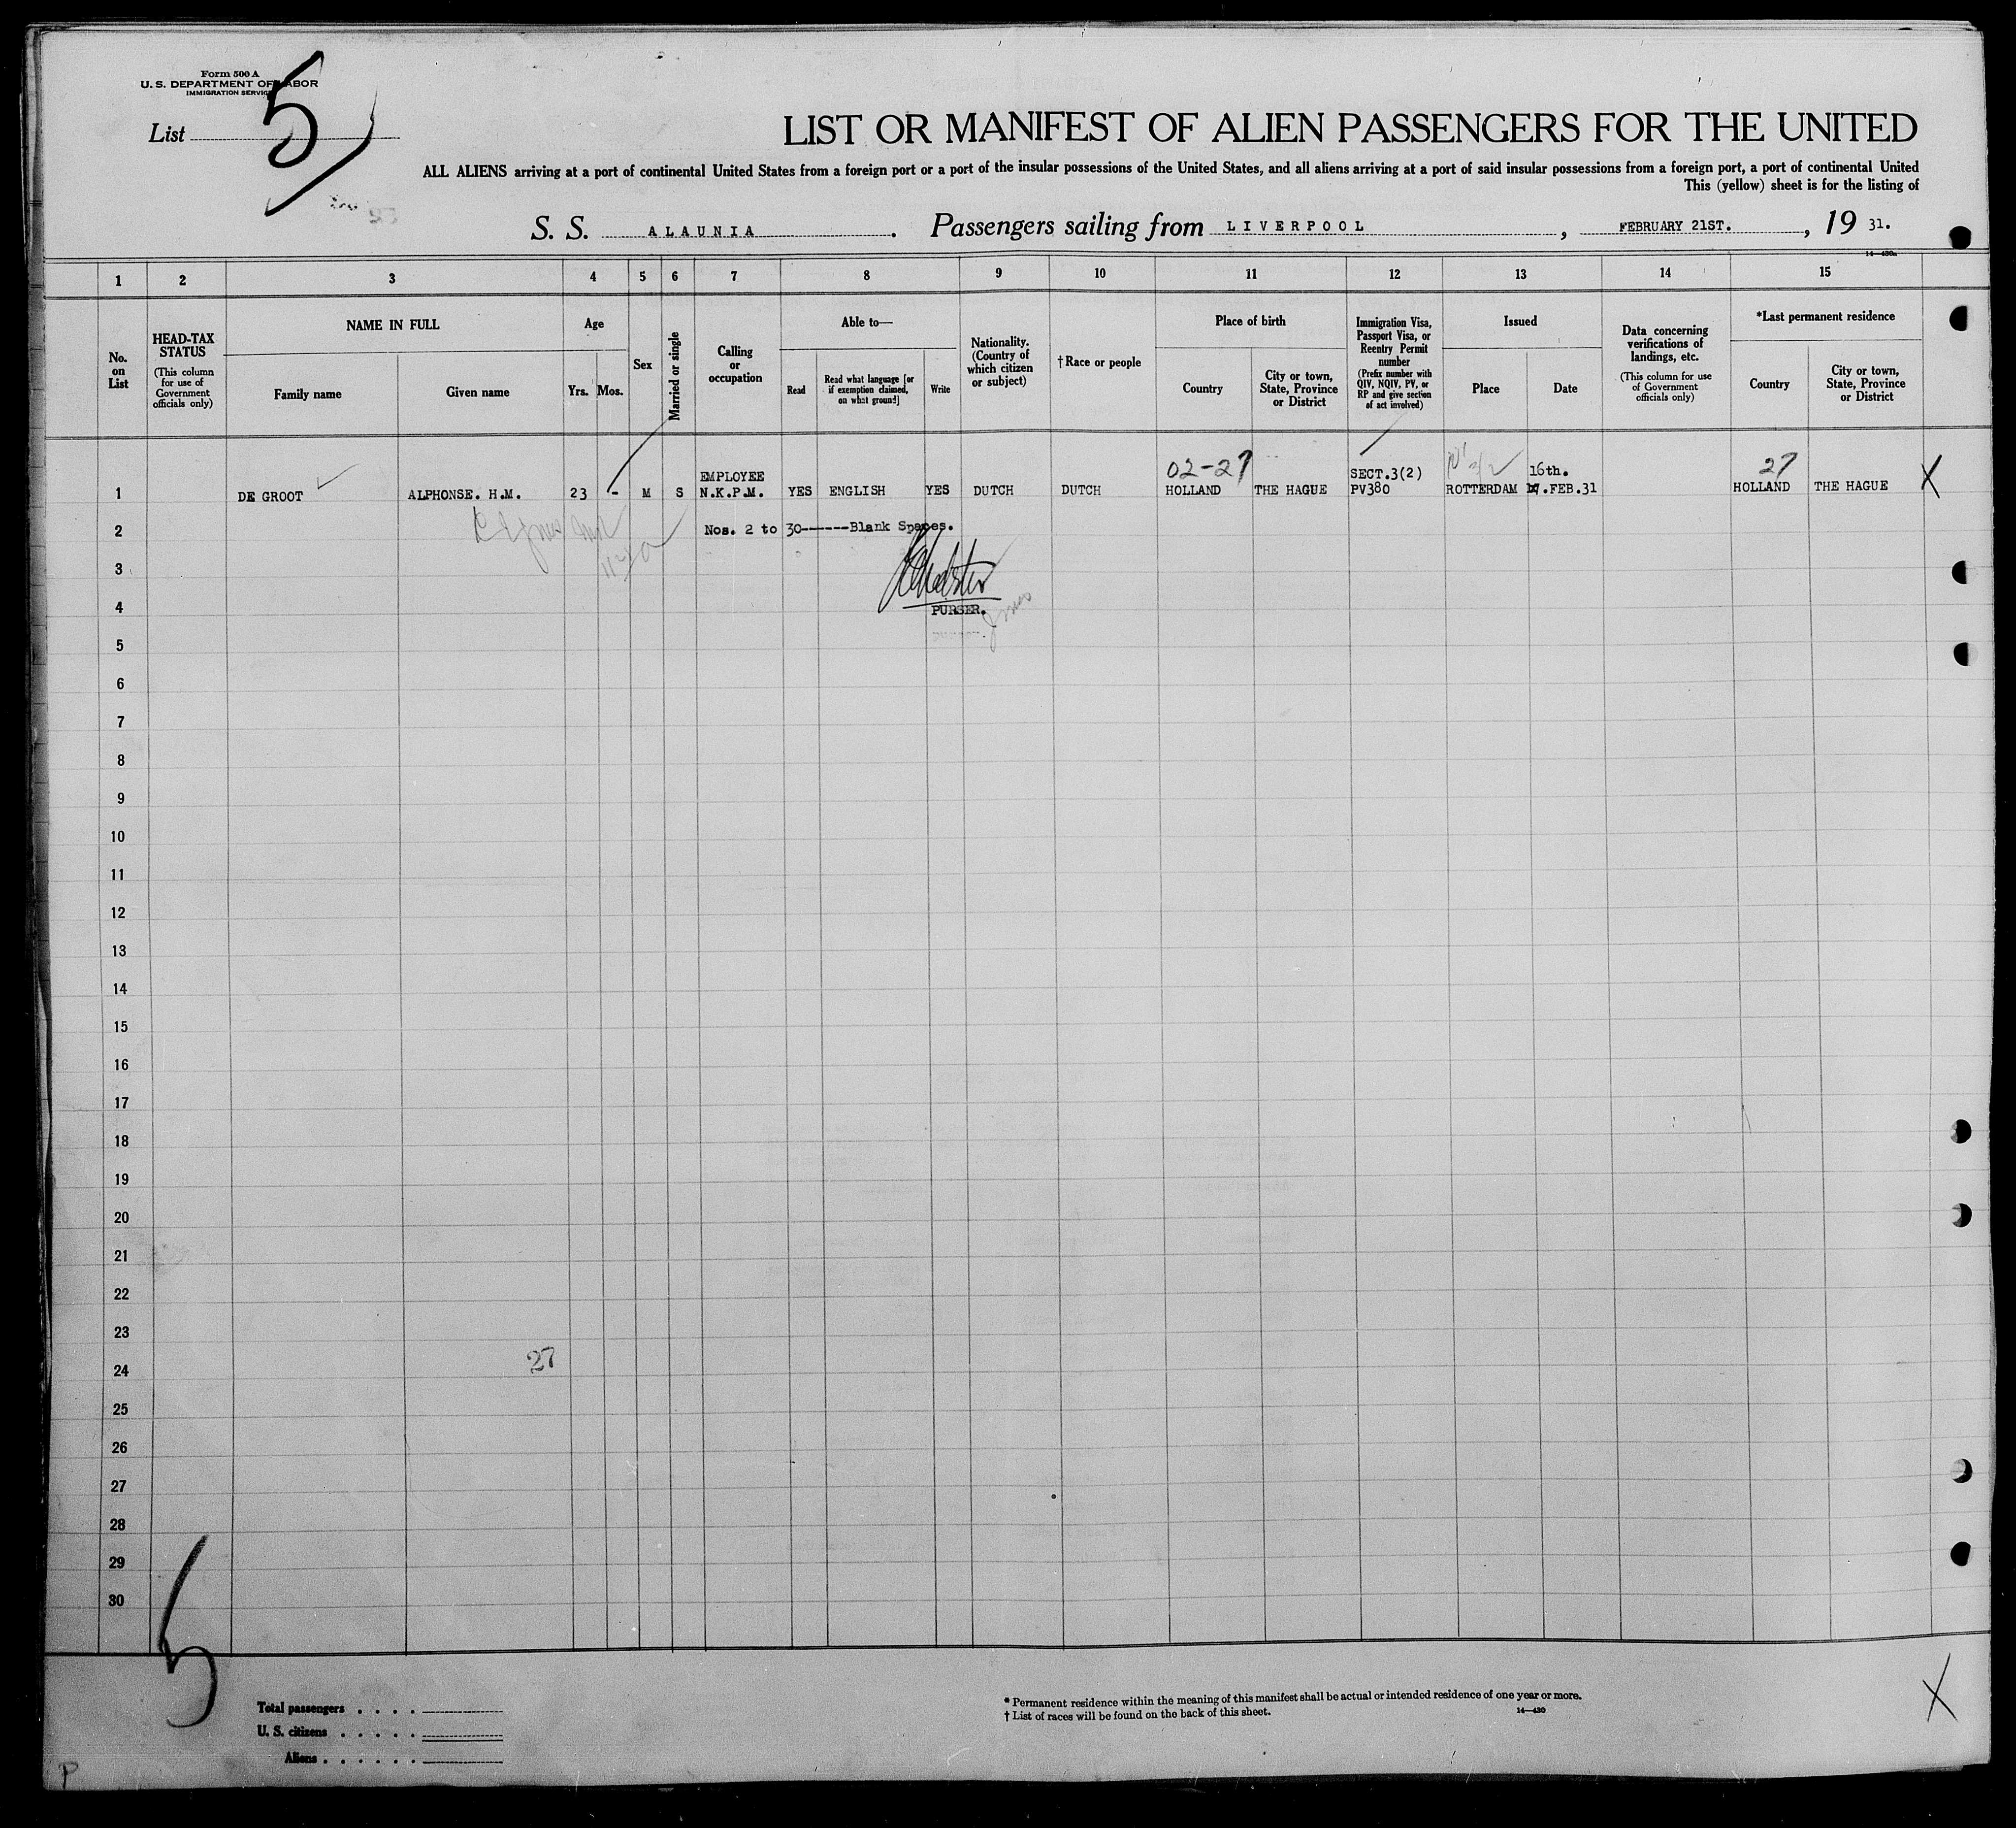 Form 500 A
U. S. DEPARTMENT OF LABOR
IMMIGRATION SERVICE
List 5
LIST OR MANIFEST OF ALIEN PASSENGERS FOR THE UNITED
ALL ALIENS arriving at a port of continental United States from a foreign port or a port of the insular possessions of the United States, and all aliens arriving at a port of said insular possessions from a foreign port, a port of continental United
This (yellow) sheet is for the listing of
S. S. ALAUNIA. Passengers sailing from LIVERPOOL, FEBRUARY 21ST., 19 31.
14—430a
1 2 3 4 5 6 7 8 9 10 11 12 13 14 15
No. on List
HEAD-TAX STATUS
(This column for use of Government officials only)
NAME IN FULL
Family name
Given name
Age
Yrs. Mos.
Sex
Married or single
Calling or occupation
Able to—
Read
Read what language [or if exemption claimed, on what ground]
Write
Nationality. (Country of which citizen or subject)
† Race or people
Place of birth
Country
City or town, State, Province or District
Immigration Visa, Passport Visa, or Reentry Permit number
(Prefix number with QIV, NQIV, PV, or RP and give section of act involved)
Issued
Place
Date
Data concerning verifications of landings, etc.
(This column for use of Government officials only)
*Last permanent residence
Country
City or town, State, Province or District
02-27 27
EMPLOYEE SECT.3(2) 16th.
1 DE GROOT ALPHONSE. H.M. 23 - M S N.K.P.M. YES ENGLISH YES DUTCH DUTCH HOLLAND THE HAGUE PV380 ROTTERDAM .FEB.31 HOLLAND THE HAGUE X
2 Nos. 2 to 30------Blank Spaces.
3
4 PURSER.
5
6
7
8
9
10
11
12
13
14
15
16
17
18
19
20
21
22
23
24 27
25
26
27
28
29
30
5
Total passengers . . . .
U. S. citizens . . . . .
Aliens . . . . . .
* Permanent residence within the meaning of this manifest shall be actual or intended residence of one year or more.
† List of races will be found on the back of this sheet.
14—430
X
P